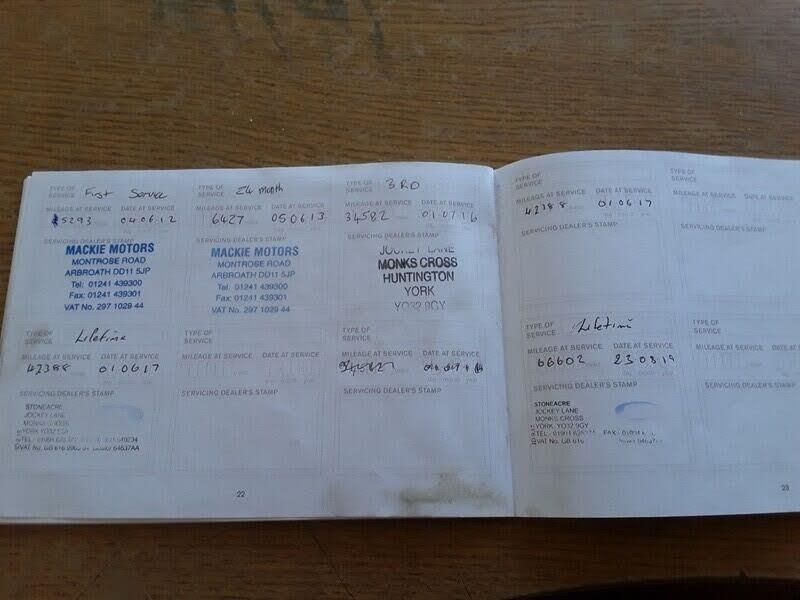 TYPE OF SERVICE First Service
MILEAGE AT SERVICE DATE AT SERVICE
5293 04.06.12
SERVICING DEALER'S STAMP
MACKIE MOTORS
MONTROSE ROAD
ARBROATH DD11 5JP
Tel: 01241 439300
Fax: 01241 439301
VAT No. 297 1029 44
TYPE OF SERVICE 24 month
MILEAGE AT SERVICE DATE AT SERVICE
6427 05.06.13
SERVICING DEALER'S STAMP
MACKIE MOTORS
MONTROSE ROAD
ARBROATH DD11 5JP
Tel: 01241 439300
Fax: 01241 439301
VAT No. 297 1029 44
TYPE OF SERVICE 3RD
MILEAGE AT SERVICE DATE AT SERVICE
34582 01.07.16
SERVICING DEALER'S STAMP
JOCKEY LANE
MONKS CROSS
HUNTINGTON
YORK
YO32 9GY
TYPE OF SERVICE Lifetime
MILEAGE AT SERVICE DATE AT SERVICE
42388 01.06.17
SERVICING DEALER'S STAMP
STONEACRE
JOCKEY LANE
MONKS CROSS
YORK
TYPE OF SERVICE
MILEAGE AT SERVICE DATE AT SERVICE
SERVICING DEALER'S STAMP
TYPE OF SERVICE
MILEAGE AT SERVICE DATE AT SERVICE
SERVICING DEALER'S STAMP
22
TYPE OF SERVICE
MILEAGE AT SERVICE DATE AT SERVICE
42388 01.06.17
SERVICING DEALER'S STAMP
TYPE OF SERVICE
MILEAGE AT SERVICE DATE AT SERVICE
SERVICING DEALER'S STAMP
TYPE OF SERVICE Lifetime
MILEAGE AT SERVICE DATE AT SERVICE
66602 23.08.19
SERVICING DEALER'S STAMP
STONEACRE
JOCKEY LANE
MONKS CROSS
YORK. YO32 9GY
VAT No. GB 616
TYPE OF SERVICE
MILEAGE AT SERVICE
SERVICING DEALER'S STAMP
23